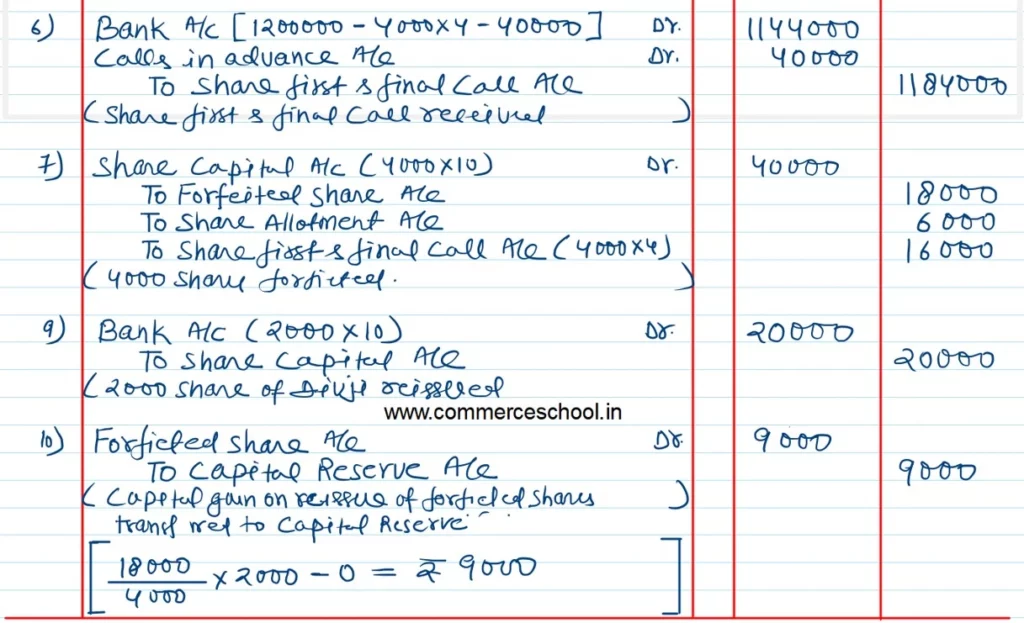 6) Bank A/c [1200000 - 4000x4 - 40000] Dr. 1144000
Calls in advance A/c Dr. 40000
To Share first & final Call A/c 1184000
(Share first & final Call received)
7) Share Capital A/c (4000x10) Dr. 40000
To Forfeited Share A/c 18000
To Share Allotment A/c 6000
To Share first & final Call A/c (4000x4) 16000
(4000 Share forficted.)
9) Bank A/c (2000x10) Dr. 20000
To Share Capital A/c 20000
(2000 Share of Divji reissued
www.commerceschool.in
10) Forficted Share A/c Dr 9000
To Capital Reserve A/c 9000
(Capital gain on reissue of forficted shares)
transf rred to Capital Reserve
[18000/4000 x 2000 - 0 = ₹ 9000]